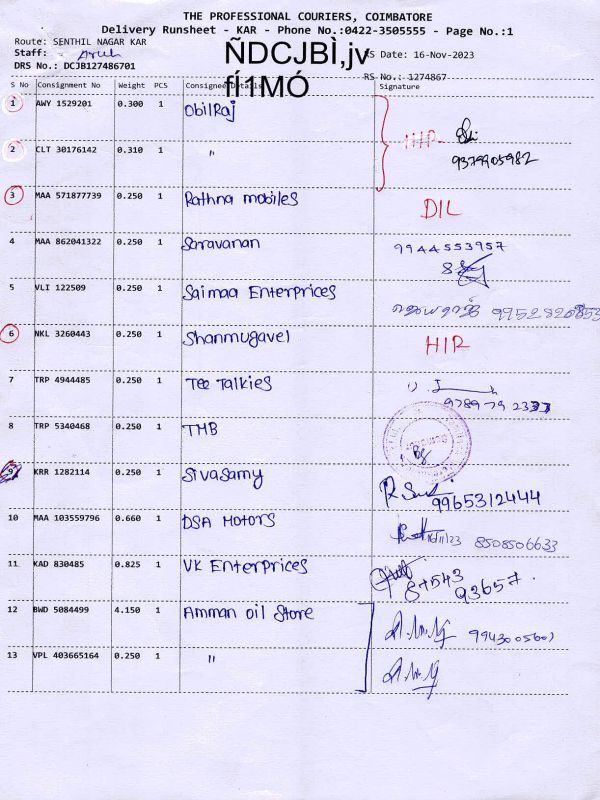 THE PROFESSIONAL COURIERS, COIMBATORE
Delivery Runsheet - KAR - Phone No.:0422-3505555 - Page No.:1
Route: SENTHIL NAGAR KAR
Staff: - Arul
ÑDCJBÌ,jv
RS Date: 16-Nov-2023
DRS No.: DCJB127486701
fÍ1MÓ
RS No.: 1274867
S No Consignment No Weight PCS Consignee Details Signature
1 AWY 1529201 0.300 1 ObilRaj
2 CLT 30176142 0.310 1 " HIR 9379905982
3 MAA 571877739 0.250 1 Rathna mobiles DIL
4 MAA 862041322 0.250 1 Saravanan 9944553957
5 VLI 122509 0.250 1 Saimaa Enterprices 9952820853
6 NKL 3260443 0.250 1 Shanmugavel HIR
7 TRP 4944485 0.250 1 Tee Talkies
8 TRP 5340468 0.250 1 TMB
9 KRR 1282114 0.250 1 Sivasamy 9965312444
10 MAA 103559796 0.660 1 DSA Motors 16/11/23 8508506633
11 KAD 830485 0.825 1 VK Enterprices 87543 93657
12 BWD 5084499 4.150 1 Amman oil Store
13 VPL 403665164 0.250 1 "